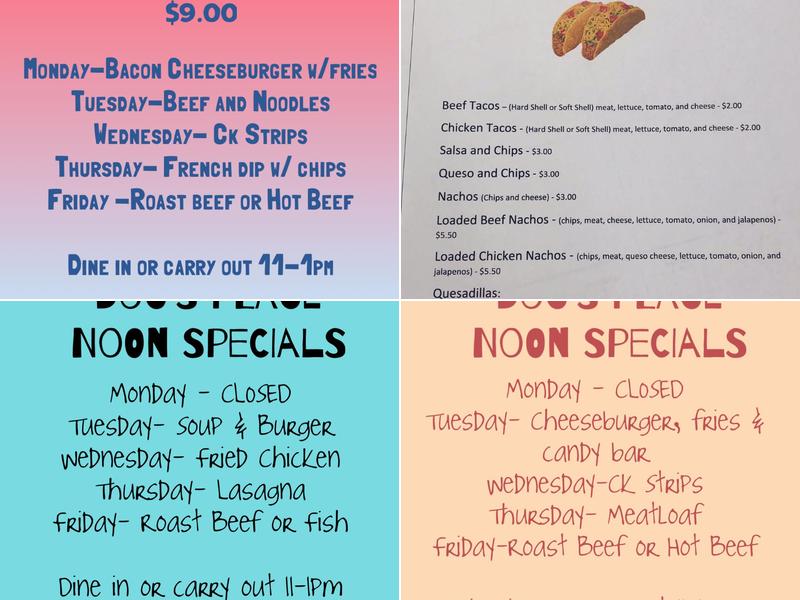 $9.00
Monday–Bacon Cheeseburger w/fries
Tuesday–Beef and Noodles
Wednesday– Ck Strips
Thursday– French dip w/ chips
Friday –Roast beef or Hot Beef
Dine in or carry out 11–1pm
Beef Tacos – (Hard Shell or Soft Shell) meat, lettuce, tomato, and cheese - $2.00
Chicken Tacos - (Hard Shell or Soft Shell) meat, lettuce, tomato, and cheese - $2.00
Salsa and Chips - $3.00
Queso and Chips - $3.00
Nachos (Chips and cheese) - $3.00
Loaded Beef Nachos - (chips, meat, cheese, lettuce, tomato, onion, and jalapenos) -
$5.50
Loaded Chicken Nachos - (chips, meat, queso cheese, lettuce, tomato, onion, and
jalapenos) - $5.50
Quesadillas:
NOON SPECIALS
Monday - CLOSED
Tuesday- Soup & Burger
Wednesday- Fried Chicken
Thursday- Lasagna
Friday- Roast Beef or Fish
Dine in or carry out 11-1pm
NOON SPECIALS
Monday - CLOSED
Tuesday- Cheeseburger, fries &
candy bar
Wednesday-CK Strips
Thursday- Meatloaf
Friday-Roast Beef or Hot Beef